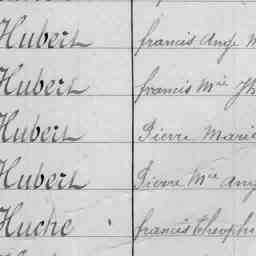 Hubert francis Ange
Hubert francis Mie
Hubert Pierre Marie
Hubert Pierre Mie Ang
Huche francis théophi